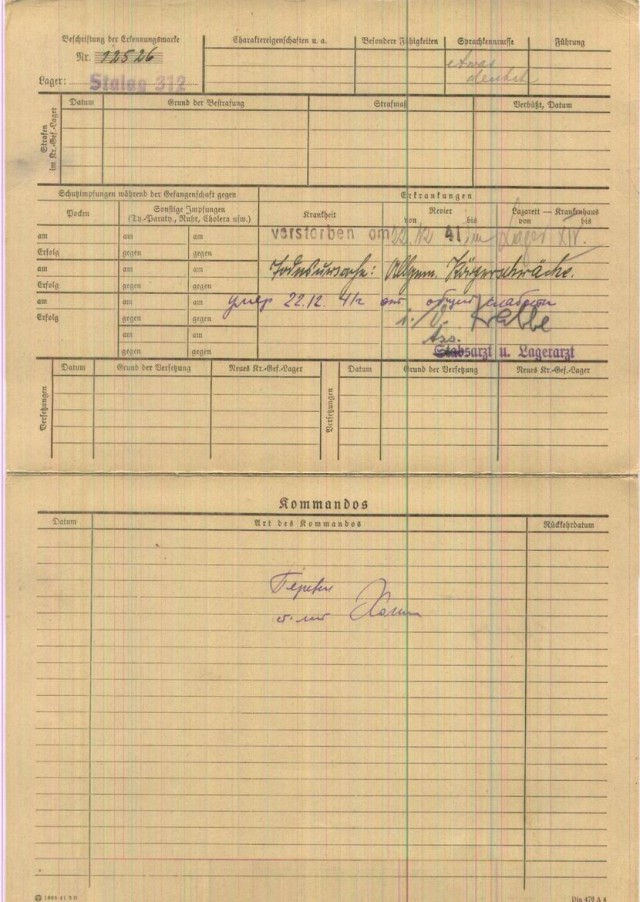 Beschriftung der Erkennungsmarke
Nr. 12526
Lager: Stalag 312
Charaktereigenschaften u. a.
Besondere Fähigkeiten
Sprachkenntnisse
etwas
deutsch
Führung
Strafen
im Kr.-Gef.-Lager
Datum Grund der Bestrafung Strafmaß Verbüßt, Datum
Schutzimpfungen während der Gefangenschaft gegen
Erkrankungen
Pocken
Sonstige Impfungen
(Ty.-Paraty., Ruhr, Cholera usw.)
Krankheit
Revier
von bis
Lazarett — Krankenhaus
von bis
am am am
verstorben am 22.12 41 im Lager XIV.
Erfolg gegen gegen
am am am
Todesursache: Allgem. Körperschwäche.
Erfolg gegen gegen
am am am
умер 22.12. 41г от общей слабости
Erfolg gegen gegen
i./V. Krebbe
am am
Ass.
Stabsarzt u. Lagerarzt
gegen gegen
Versetzungen
Datum Grund der Versetzung Neues Kr.-Gef.-Lager
Versetzungen
Datum Grund der Versetzung Neues Kr.-Gef.-Lager
Kommandos
Datum Art des Kommandos Rückkehrdatum
Din 476 A 4